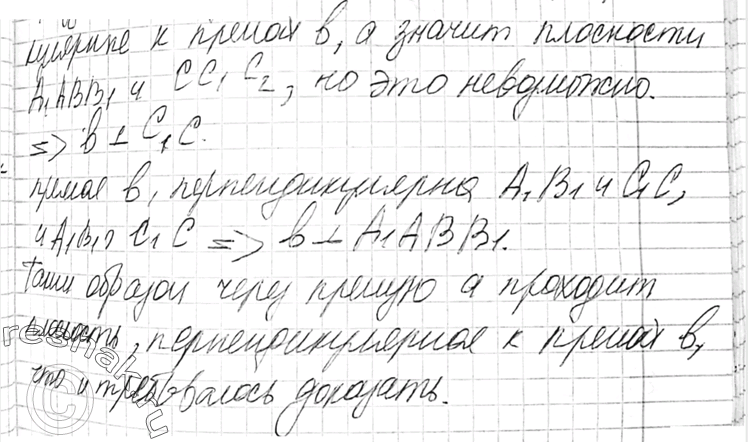 кулярные к прямой в, а значит плоскости
A₁ABB₁ и CC₁C₂, но это невозможно.
=> в ⊥ C₁C.
прямая в, перпендикулярна A₁B₁ и C₁C,
и A₁B₁ C₁C => в ⊥ A₁ABB₁.
Таким образом через прямую а проходит
перпендикулярная к прямой в,
что и требовалось доказать.
reshak.ru